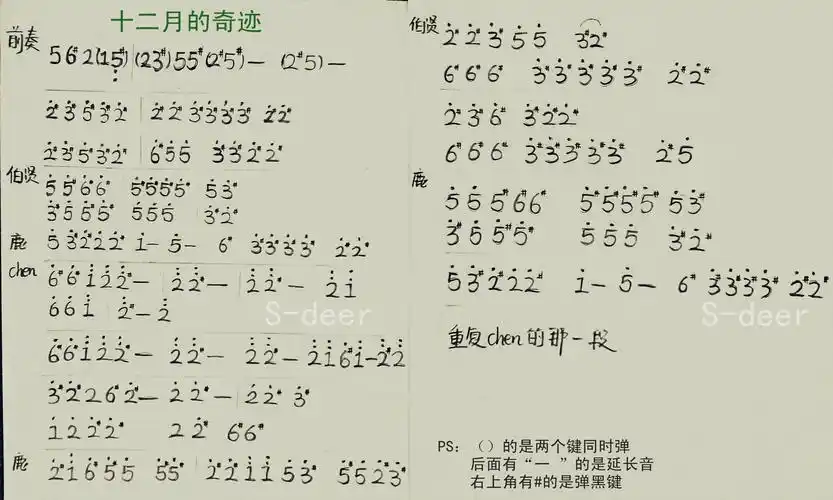 十二月的奇迹
前奏 5 6# 2 (1 5#) (2 3#) 5 5# (2# 5#) — (2# 5) —
2̇# 3̇# 5̇# 3̇# 2̇# 2̇# 2̇ 3̇# 3̇# 3̇# 3̇# 2̇ 2̇#
2̇# 3̇# 5̇# 3̇# 2̇# 6# 5̇ 5̇ 3̇# 3̇ 2̇# 2̇#
伯贤 5̇ 5̇# 6̇# 6̇# 5̇# 5̇# 5̇# 5̇# 5̇ 3̇#
3̇# 5̇ 5̇# 5̇# 5̇ 5̇ 5̇ 3̇# 2̇#
鹿 5̇ 3̇# 2̇# 2̇# 2̇# i — 5̇ — 6# 3̇# 3̇# 3̇# 3̇# 2̇# 2̇#
chen 6̇# 6̇# i 2̇ 2̇# — 2̇ 2̇# — 2̇ 2̇# — 2̇ i
6 6 i 2̇# — 2̇
S-deer
6̇# 6̇# i 2̇ 2̇# — 2̇ 2̇# — 2̇ 2̇# — 2̇ i 6̇# i — 2̇# 2̇
3̇# 2̇# 2 2 6# 2̇# — 2̇ 2̇# — 2̇ 2̇# 3̇#
i 2̇ 2̇# 2̇# 2̇ 2̇# 6# 6#
鹿 2̇# i 6# 5̇ 5̇ 5̇# 5̇# 2̇# 2̇ i i 5̇ 3̇# 5̇ 5̇# 2̇ 3̇#
伯贤 2̇# 2̇# 3̇# 5̇ 5̇ 3̇# 2̇#
6# 6# 6# 3̇# 3̇# 3̇# 3̇# 3̇# 2̇# 2̇#
2̇# 3̇# 6# 3̇# 2̇ 2̇#
6# 6# 6# 3̇# 3̇# 3̇# 3̇# 3̇# 2̇# 5̇
鹿 5̇ 5̇ 5̇# 6# 6# 5̇# 5̇# 5̇# 5̇# 5̇ 3̇#
3̇# 5̇ 5̇# 5̇# 5̇ 5̇ 5̇ 3̇# 2̇#
5̇ 3̇# 2̇# 2̇# 2̇# i — 5̇ — 6# 3̇# 3̇# 3̇# 3̇# 2̇# 2̇#
S-deer
重复chen的那一段
PS: （）的是两个键同时弹
后面有“一 ”的是延长音
右上角有#的是弹黑键